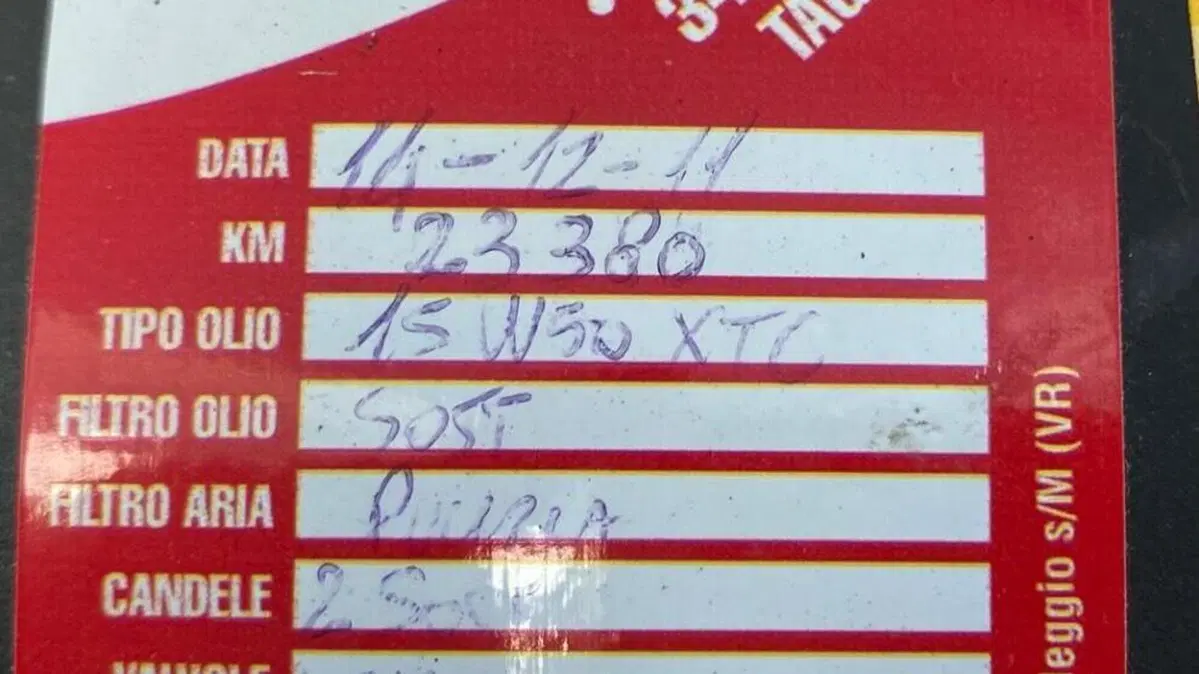 DATA 14-12-11
KM 23380
TIPO OLIO 15W50 XTC
FILTRO OLIO SOST
FILTRO ARIA PULIZIA
CANDELE 2 SOST
VALVOLE
eggio S/M (VR)